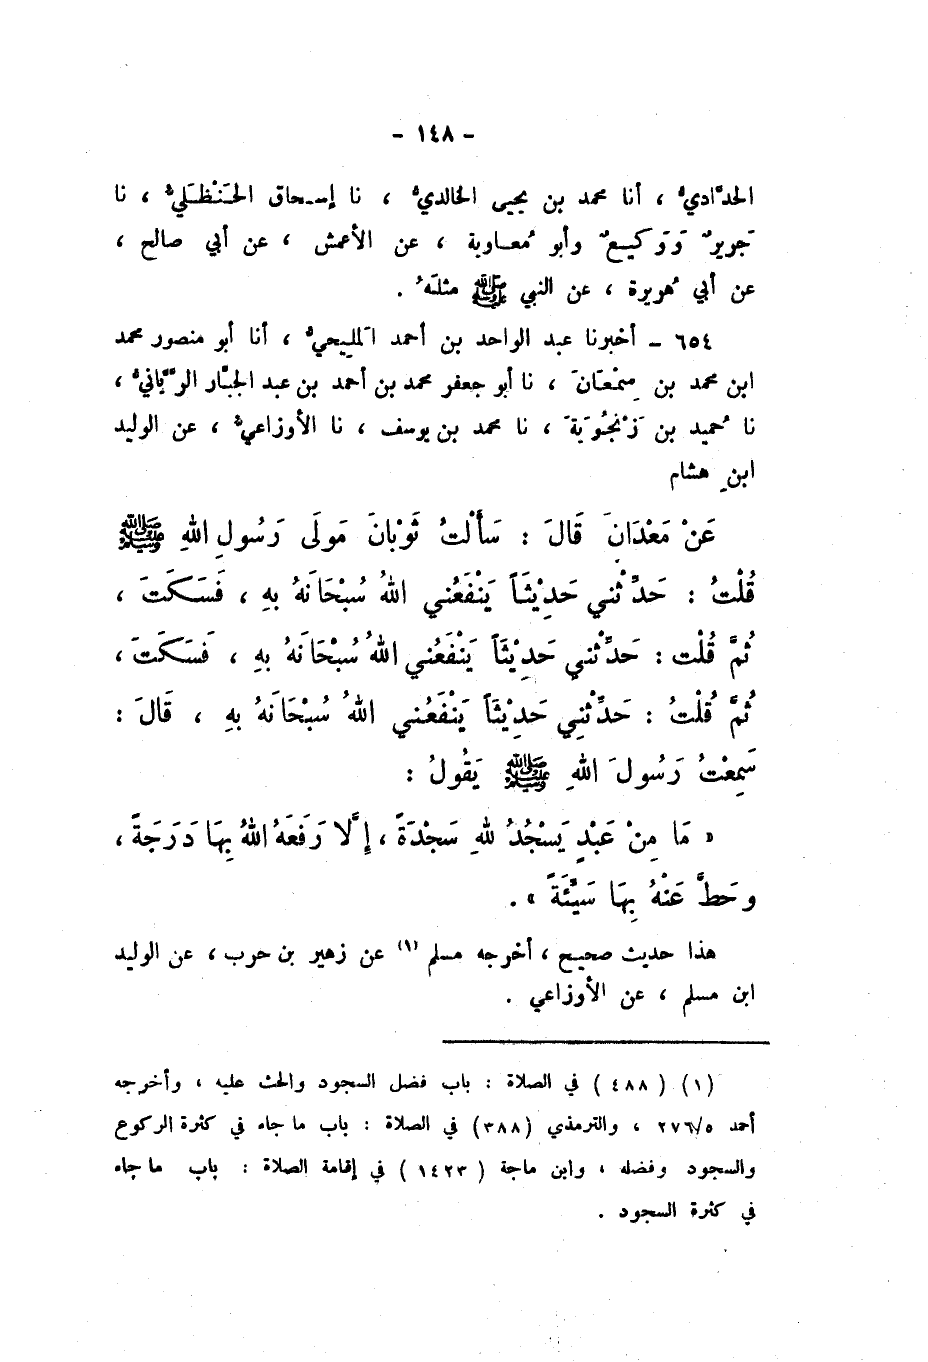 - ١٤٨ -
الحدَّادي ، أنا محمد بن يحيى الخالدي ، نا إسحاق الحَنْظَلي ، نا
جرير وَوَكيع وأبو مُعاوية ، عن الأعمش ، عن أبي صالح ،
عن أبي هُريرة ، عن النبي ﷺ مثلَه .
٦٥٤ - أخبرنا عبد الواحد بن أحمد المليحي ، أنا أبو منصور محمد
ابن محمد بن سِمْعَانَ ، نا أبو جعفر محمد بن أحمد بن عبد الجبَّار الرَّيَّاني ،
نا حُميد بن زَنْجُوَيَة ، نا محمد بن يوسف ، نا الأوزاعي ، عن الوليد
ابنِ هشام
عَنْ مَعْدَانَ قَالَ : سَأَلْتُ ثَوْبَانَ مَولَى رَسُولِ اللهِ ﷺ
قُلْتُ : حَدِّثْني حَدِيْثَاً يَنْفَعُني اللهُ سُبْحَانَهُ بِهِ ، فَسَكَتَ ،
ثُمَّ قُلْت : حَدِّثْني حَدِيْثَاً يَنْفَعُني اللهُ سُبْحَانَهُ بِهِ ، فَسَكَتَ ،
ثُمَّ قُلْتُ : حَدِّثْنِي حَدِيْثَاً يَنْفَعُني اللهُ سُبْحَانَهُ بِهِ ، قَالَ :
سَمِعْتُ رَسُولَ اللهِ ﷺ يَقُولُ :
« مَا مِنْ عَبْدٍ يَسْجُدُ للهِ سَجْدَةً ، إِلَّا رَفَعَهُ اللهُ بِهَا دَرَجَةً ،
وحَطَّ عَنْهُ بِهَا سَيِّئَةً » .
هذا حديث صحيح ، أخرجه مسلم (١) عن زهير بن حرب ، عن الوليد
ابن مسلم ، عن الأوزاعي .
(١) ( ٤٨٨ ) في الصلاة : باب فضل السجود والحث عليه ، وأخرجه
أحمد ٢٧٦/٥ ، والترمذي (٣٨٨) في الصلاة : باب ما جاء في كثرة الركوع
والسجود وفضله ، وابن ماجة ( ١٤٢٣ ) في إقامة الصلاة : باب ما جاء
في كثرة السجود .